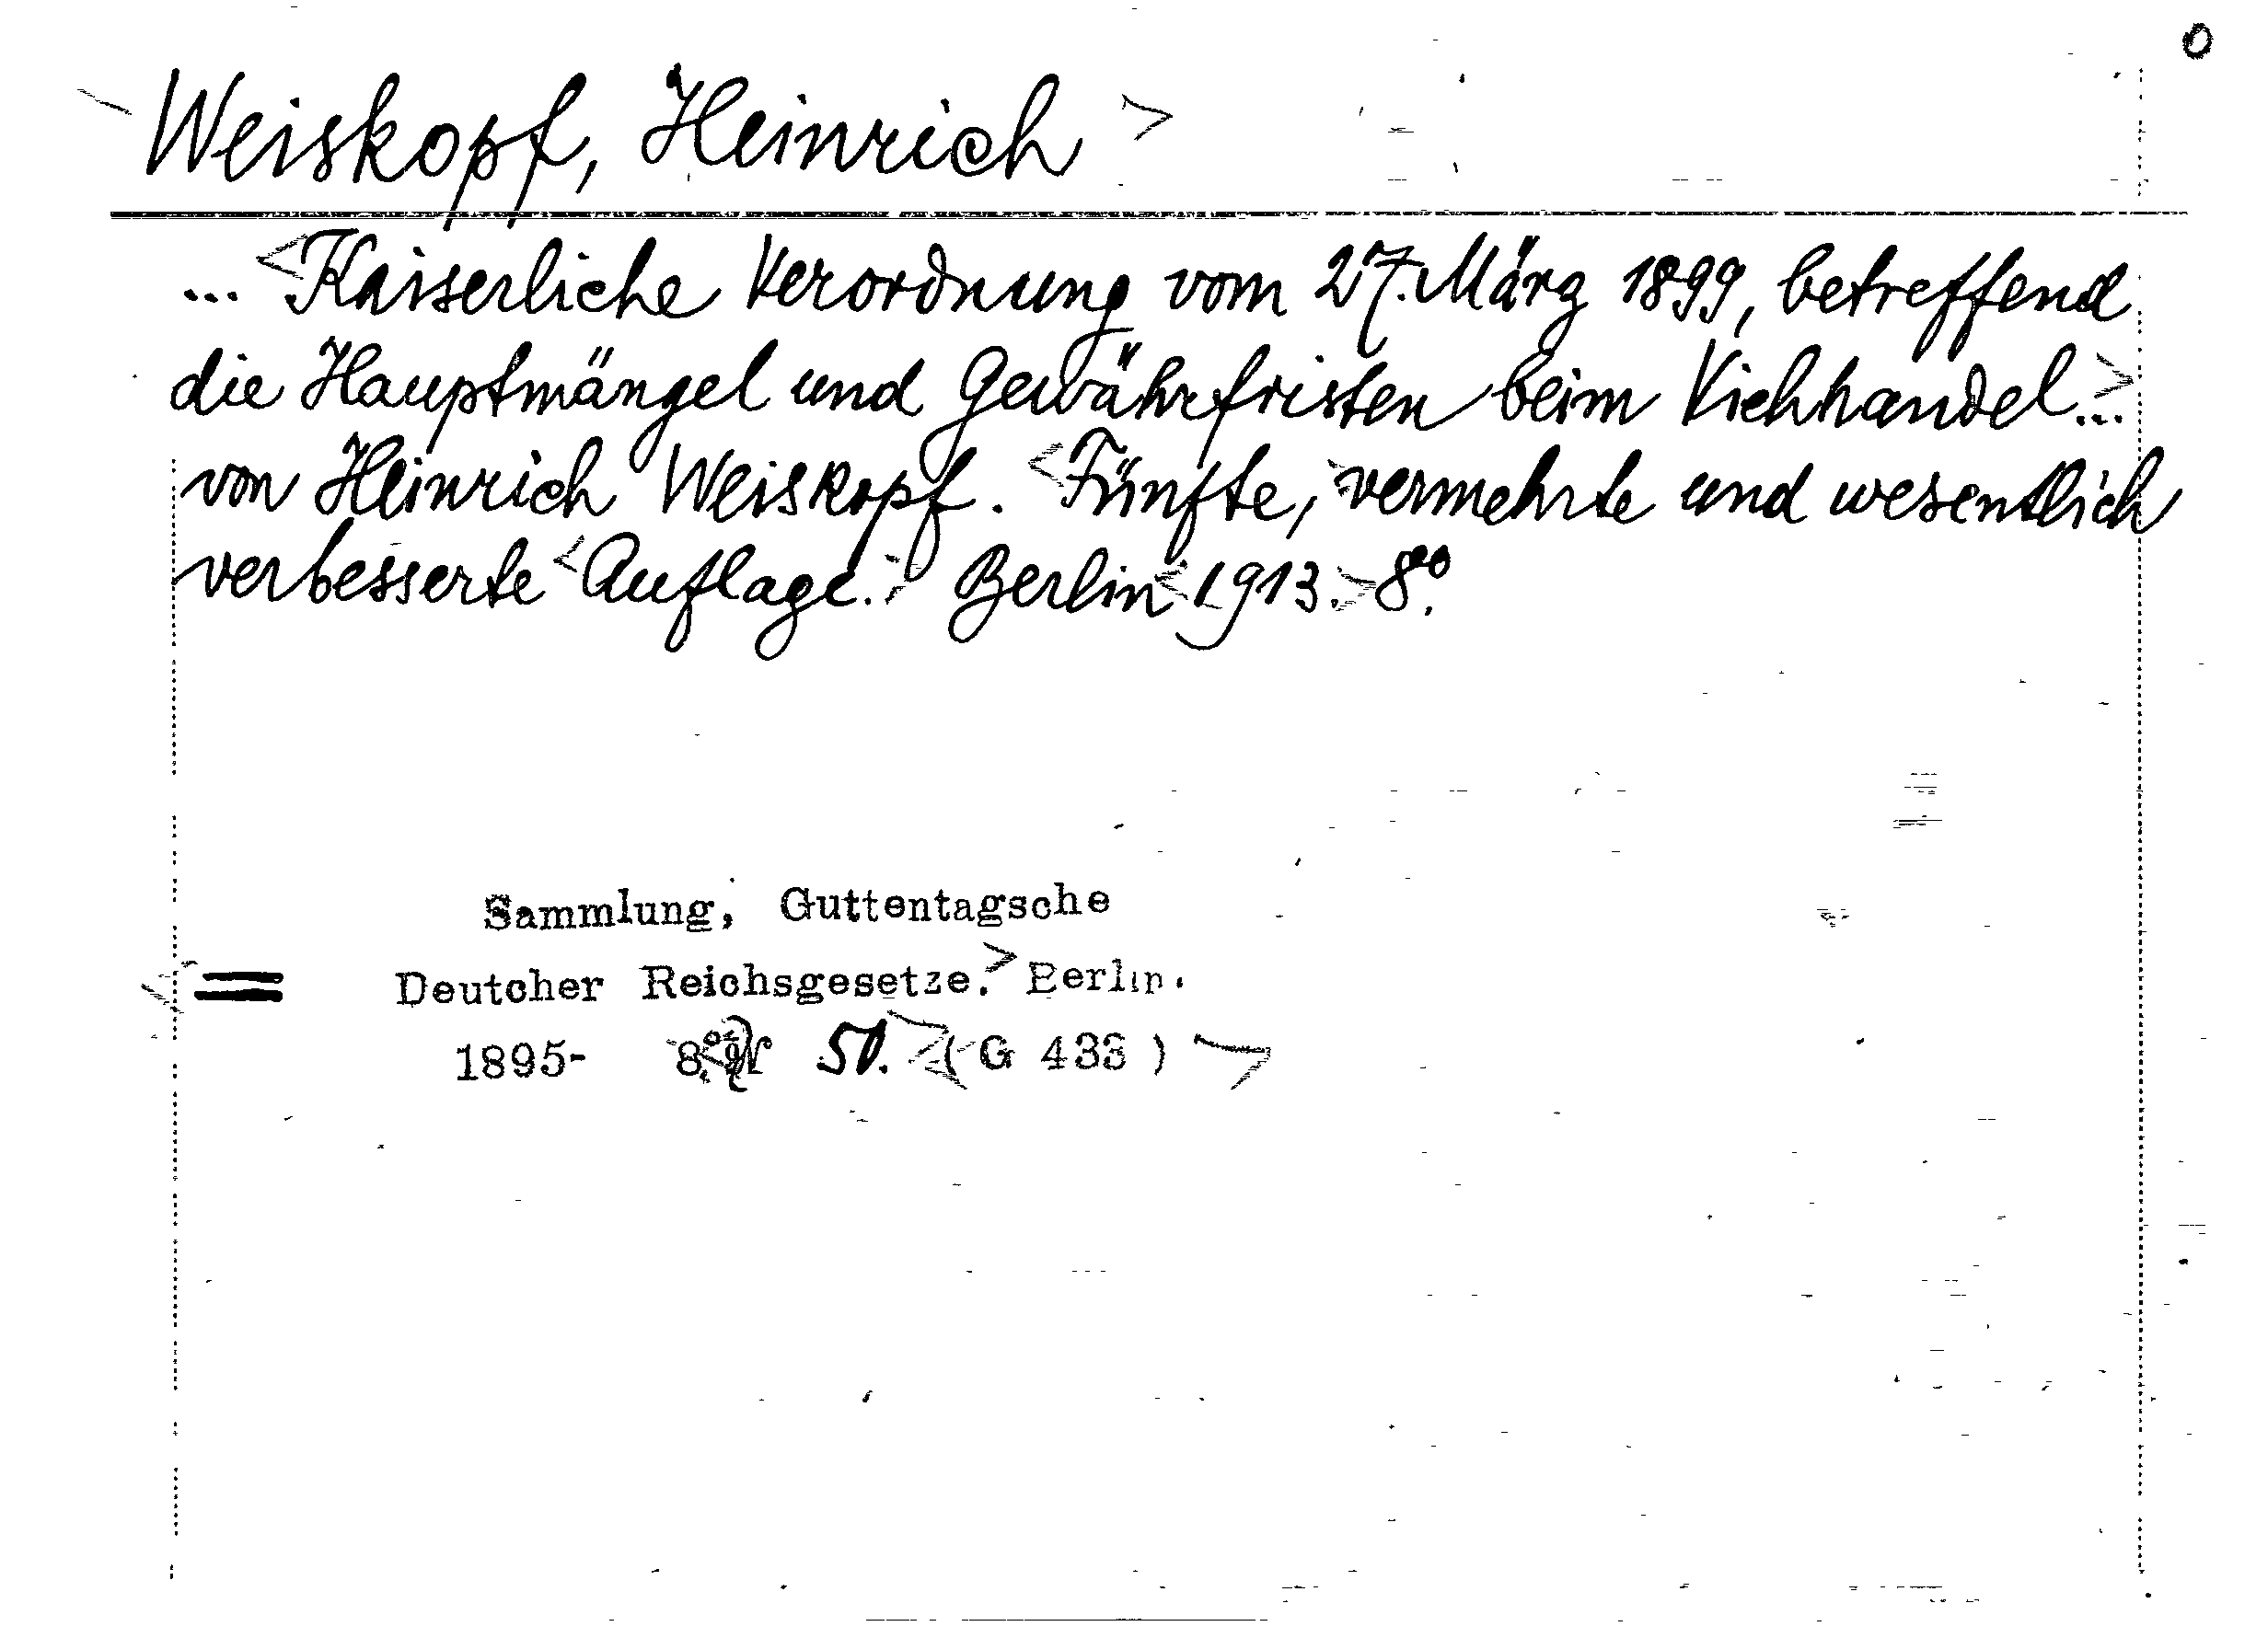 Weiskopf, Heinrich
... Kaiserliche Verordnung vom 27. März 1899, betreffend
die Hauptmängel und Gewährfristen beim Viehhandel...
von Heinrich Weiskopf. Fünfte, vermehrte und wesentlich
verbesserte Auflage. Berlin 1913. 8°.
Sammlung, Guttentagsche
= Deutcher Reichsgesetze. Berlin.
1895- 8°. 50. (G 433)